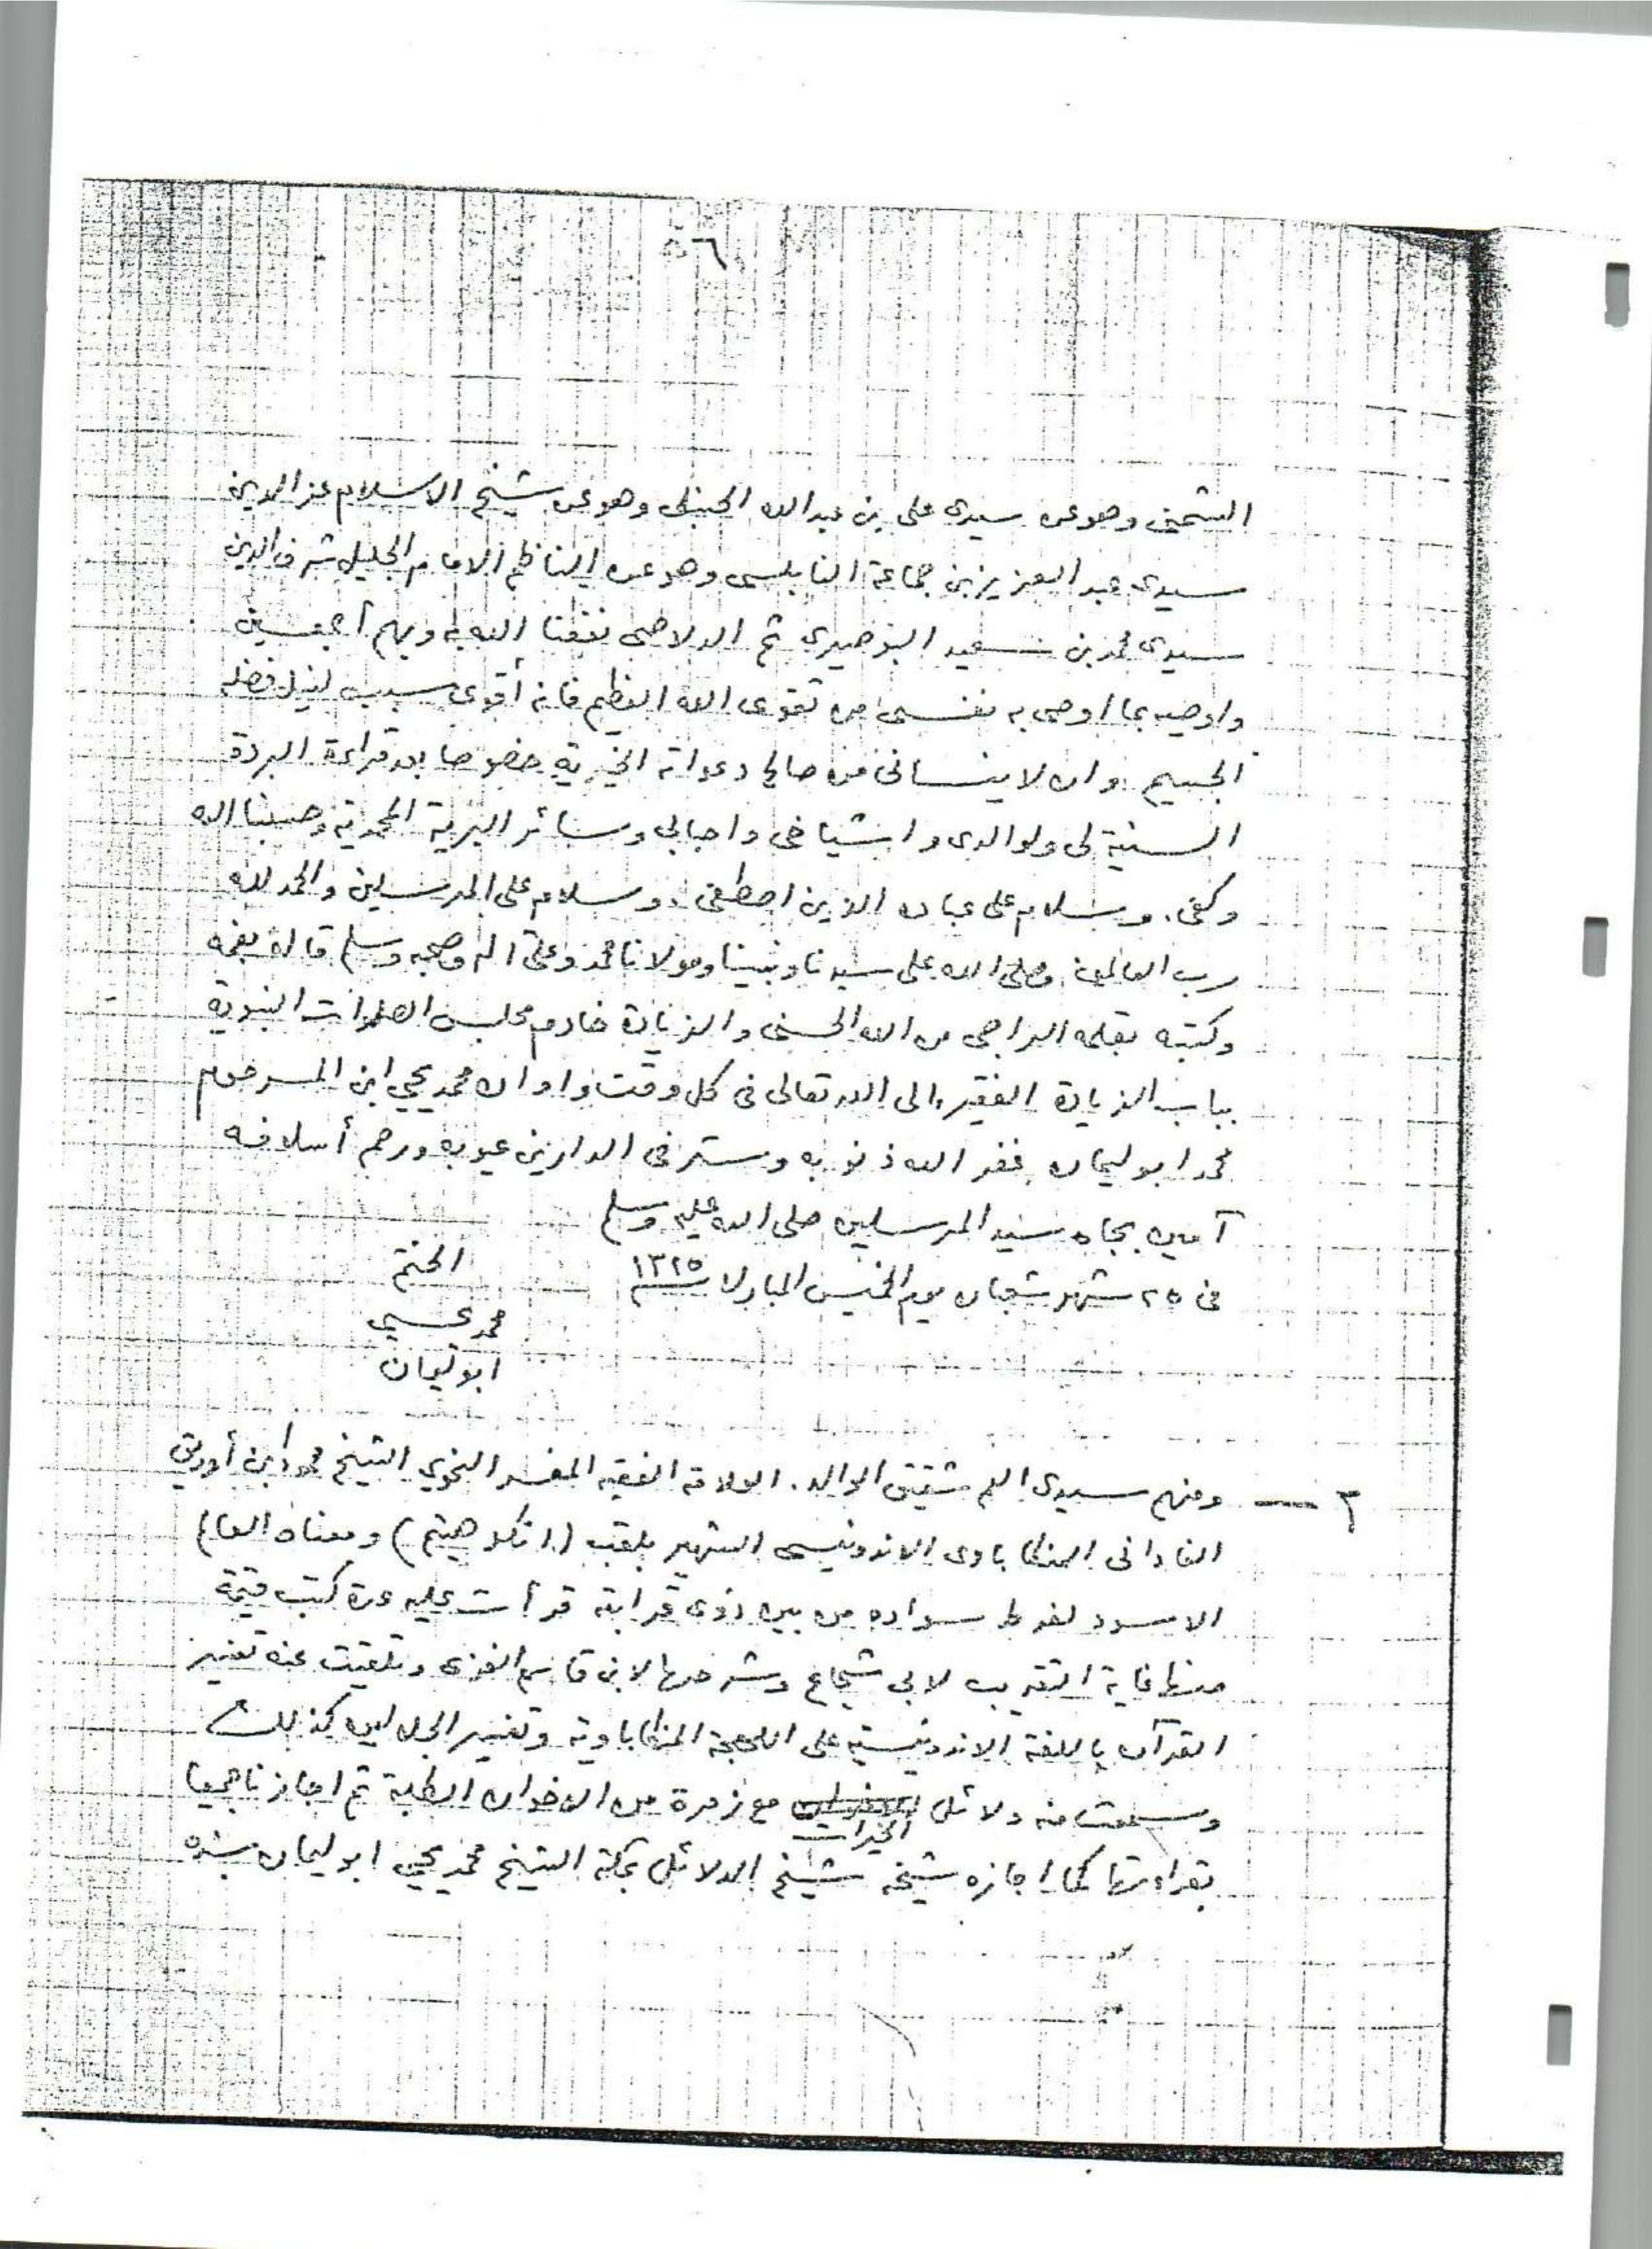 ٦
الشمني وهو عن سيدى على بن عبد الله الحنبلى وهو عن شيخ الاسلام عز الدين
سيدى عبد العزيز بن جماعة النابلسى وهو عن الناظم الامام الجليل شرف الدين
سيدى محمد بن سعيد البوصيرى ثم الدلاصى نفعنا الله به وبهم أجمعين
واوصيه بما اوصى به نفسى من تقوى الله العظيم فانه أقوى سبب لنيل فضله
الجسيم وان لا ينسانى من صالح دعواته الخيرية خصوصا بعد قراءة البردة
السنية لى ولوالدى واشياخى واحبابى وسائر البرية المحمدية وحسبنا الله
وكفى . وسلام على عباده الذين اصطفى . وسلام على المرسلين والحمد لله
رب العالمين وصلى الله على سيدنا ونبينا ومولانا محمد وعلى اله وصحبه وسلم قاله بفمه
وكتبه بقلمه الراجى من الله الحسنى والزيادة خادم مجلس الصلوات النبوية
بباب الزيادة الفقير الى الله تعالى فى كل وقت واوان محمد يحيى ابن المرحوم
محمد ابو ليمان غفر الله ذنوبه وستر فى الدارين عيوبه ورحم أسلافه
آمين بجاه سيد المرسلين صلى الله عليه وسلم
فى ٢٥ شهر شعبان يوم الخميس المبارك ١٣٢٥
الختم
محمد يحيى
ابو ليمان
٣ — ومنهم سيدى العم شقيق الوالد . العلامة الفقيه المفسر النحوي الشيخ محمود ابن أوديق
الفادانى المنكاباوى الاندونيسى الشهير بلقب ( انكو هيتم ) ومعناه العالم
الاسود لفرط سواده من بين ذوى قرابته قرأت عليه عدة كتب قيمة
منها غاية التقريب لابى شجاع وشرحها لابن قاسم الغزى وتلقيت عنه تفسير
القرآن باللغة الاندونيسية على اللهجة المنكاباوية وتفسير الجلالين كذلك
وسمعت منه دلائل الخيرات مع زمرة من الاخوان الطلبة ثم اجازنا جميعا
بقراءتها كما اجازه شيخه شيخ الدلائل بمكة الشيخ محمد يحيى ابو ليمان بسنده